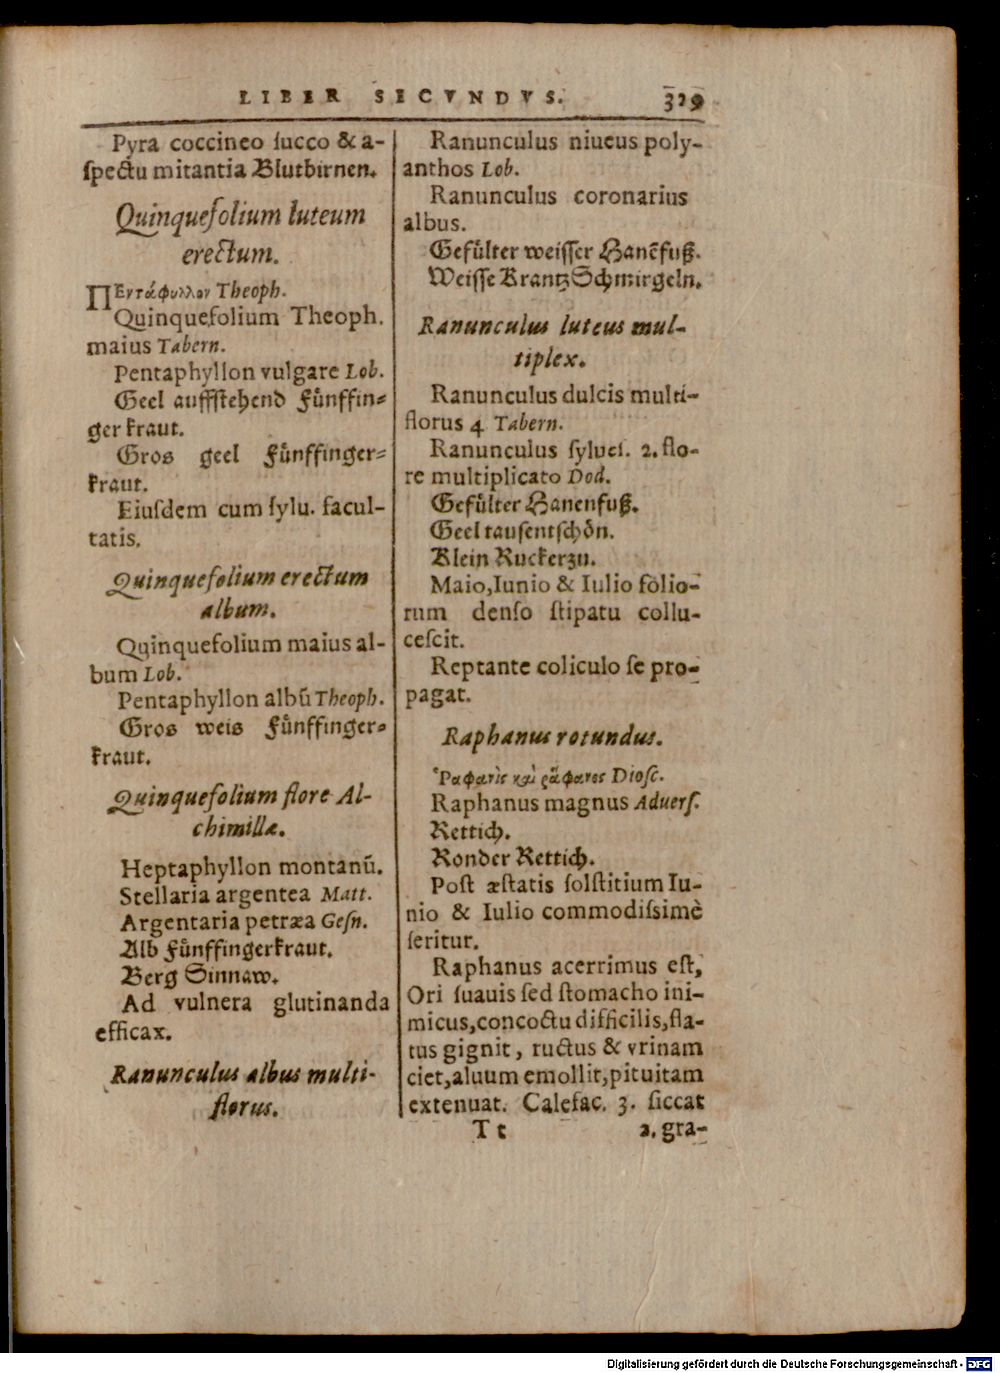 LIBER SECVNDVS. 329
Pyra coccineo ſucco & a-
ſpectu mitantia Blutbirnen.
Quinquefolium luteum
erectum.
ΠΕντάφυλλον Theoph.
Quinquefolium Theoph.
maius Tabern.
Pentaphyllon vulgare Lob.
Geel auffſtehend Fuͤnffin⸗
ger kraut.
Gros geel Fuͤnffinger⸗
kraut.
Eiuſdem cum ſylu. facul-
tatis.
Quinquefolium erectum
album.
Quinquefolium maius al-
bum Lob.
Pentaphyllon albū Theoph.
Gros weis Fuͤnffinger⸗
kraut.
Quinquefolium flore Al-
chimillæ.
Heptaphyllon montanū.
Stellaria argentea Matt.
Argentaria petræa Geſn.
Alb Fuͤnffingerkraut.
Berg Sinnaw.
Ad vulnera glutinanda
efficax.
Ranunculus albus multi-
florus.
Ranunculus niueus poly-
anthos Lob.
Ranunculus coronarius
albus.
Gefuͤlter weiſſer Hanēfuß.
Weiſſe Krantz Schmirgeln.
Ranunculus luteus mul-
tiplex.
Ranunculus dulcis multi-
florus 4 Tabern.
Ranunculus ſylueſ. 2. flo-
re multiplicato Dod.
Gefuͤlter Hanenfuß.
Geel tauſentſchoͤn.
Klein Ruckerzu.
Maio, Iunio & Iulio folio-
rum denſo ſtipatu collu-
ceſcit.
Reptante coliculo ſe pro-
pagat.
Raphanus rotundus.
Ῥαφανὶς καὶ ῥάφανος Dioſc.
Raphanus magnus Aduerſ.
Rettich.
Ronder Rettich.
Poſt æſtatis ſolſtitium Iu-
nio & Iulio commodiſsimè
ſeritur.
Raphanus acerrimus eſt,
Ori ſuauis ſed ſtomacho ini-
micus, concoctu difficilis, fla-
tus gignit, ructus & vrinam
ciet, aluum emollit, pituitam
extenuat. Calefac. 3. ſiccat
T t 2. gra-
Digitalisierung gefördert durch die Deutsche Forschungsgemeinschaft - DFG